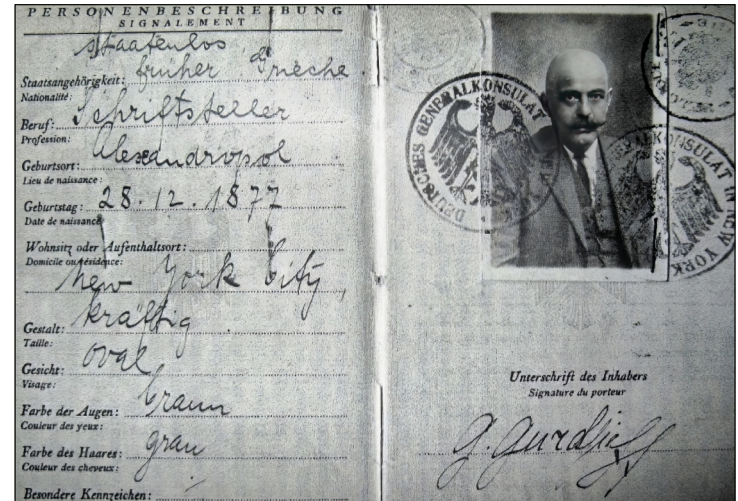 PERSONENBESCHREIBUNG
SIGNALEMENT
staatenlos
Staatsangehörigkeit: früher Grieche
Nationalité:
Beruf: Schriftsteller
Profession:
Geburtsort: Alexandropol
Lieu de naissance:
Geburtstag: 28.12.1877
Date de naissance
Wohnsitz oder Aufenthaltsort:
Domicile ou résidence:
New York City
Gestalt: kräftig
Taille:
Gesicht: oval
Visage:
Farbe der Augen: braun
Couleur des yeux:
Farbe des Haares: grau
Couleur des cheveux:
Besondere Kennzeichen:
DEUTSCHES GENERALKONSULAT
GENERALKONSULAT IN NEW YORK
Unterschrift des Inhabers
Signature du porteur
G. Gurdjieff